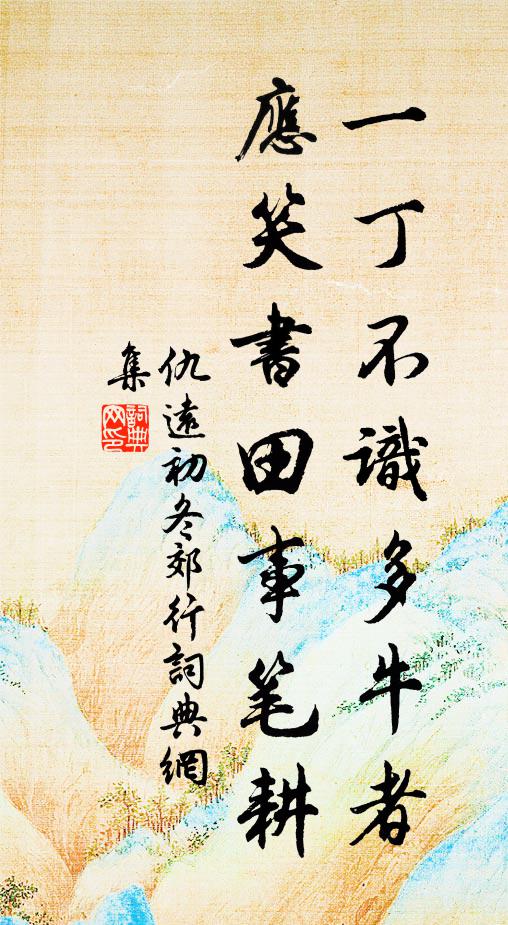 一丁不識多牛者
應笑書田事笔耕
仇遠初冬郊行詞典網
集
詞典网印